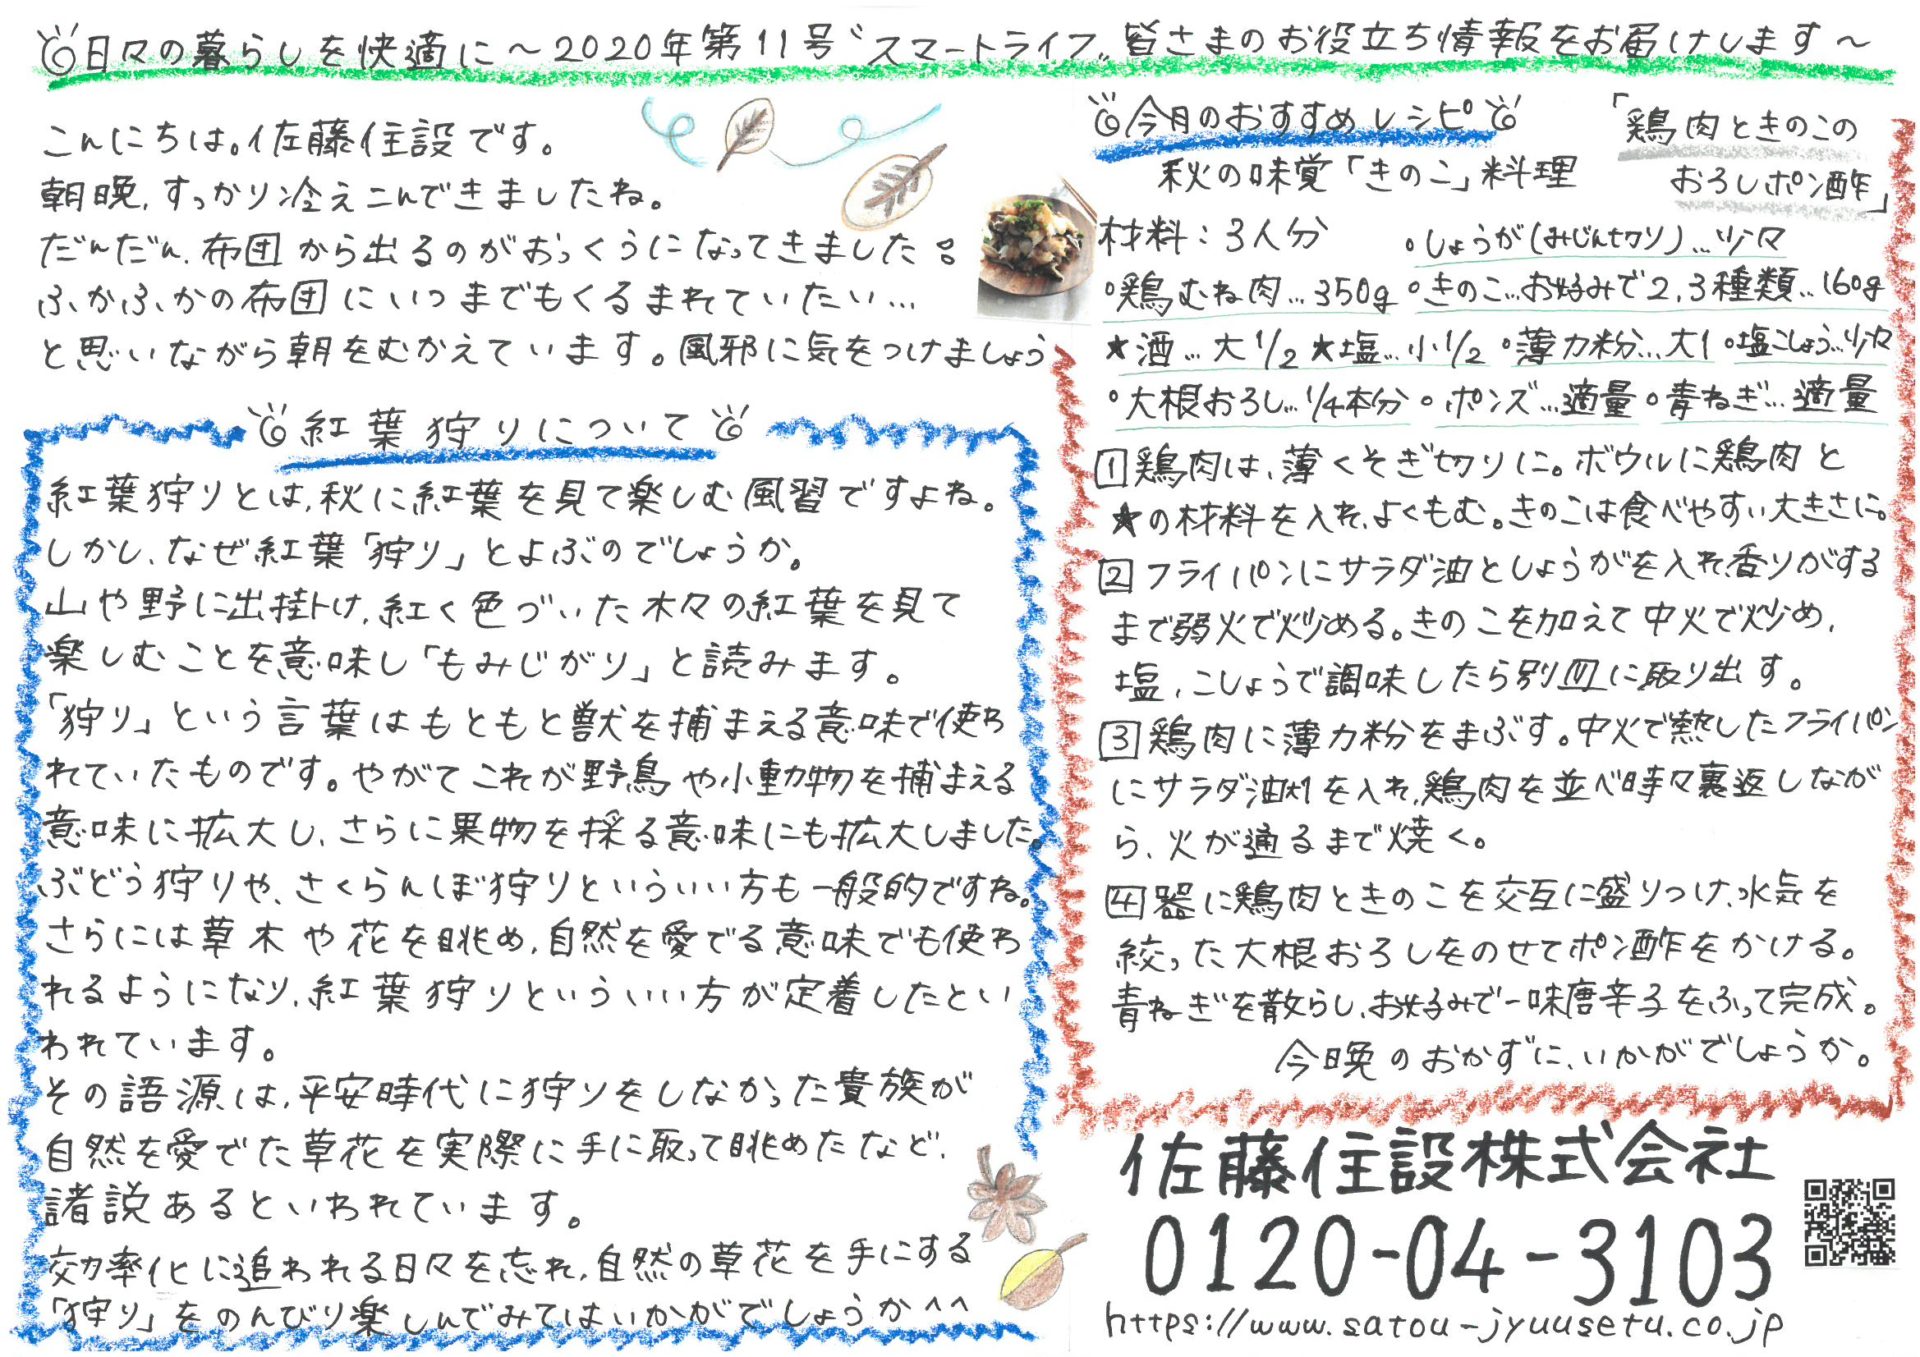 日々の暮らしを快適に～2020年第11号〝スマートライフ〟皆さまのお役立ち情報をお届けします～
こんにちは。佐藤住設です。
朝晩、すっかり冷えこんできましたね。
だんだん、布団から出るのがおっくうになってきました。
ふかふかの布団にいつまでもくるまれていたい…
と思いながら朝をむかえています。風邪に気をつけましょう
紅葉狩りについて
紅葉狩りとは、秋に紅葉を見て楽しむ風習ですよね。
しかし、なぜ紅葉「狩り」とよぶのでしょうか。
山や野に出掛け、紅く色づいた木々の紅葉を見て
楽しむことを意味し「もみじがり」と読みます。
「狩り」という言葉はもともと獣を捕まえる意味で使わ
れていたものです。やがてこれが野鳥や小動物を捕まえる
意味に拡大し、さらに果物を採る意味にも拡大しました。
ぶどう狩りや、さくらんぼ狩りといういい方も一般的ですね。
さらには草木や花を眺め、自然を愛でる意味でも使わ
れるようになり、紅葉狩りといういい方が定着したとい
われています。
その語源は、平安時代に狩りをしなかった貴族が
自然を愛でた草花を実際に手に取って眺めたなど、
諸説あるといわれています。
効率化に追われる日々を忘れ、自然の草花を手にする
「狩り」をのんびり楽しんでみてはいかがでしょうか^^
今月のおすすめレシピ
「鶏肉ときのこの
おろしポン酢」
秋の味覚「きのこ」料理
材料：3人分
・しょうが(みじん切り)…少々
・鶏むね肉…350g ・きのこ…お好みで2,3種類…160g
★酒…大1/2 ★塩…小1/2 ・薄力粉…大1 ・塩こしょう…少々
・大根おろし…1/4本分 ・ポンズ…適量 ・青ねぎ…適量
1 鶏肉は、薄くそぎ切りに。ボウルに鶏肉と
★の材料を入れ、よくもむ。きのこは食べやすい大きさに。
2 フライパンにサラダ油としょうがを入れ、香りがする
まで弱火で炒める。きのこを加えて中火で炒め、
塩、こしょうで調味したら別皿に取り出す。
3 鶏肉に薄力粉をまぶす。中火で熱したフライパン
にサラダ油大1を入れ、鶏肉を並べ時々裏返しなが
ら、火が通るまで焼く。
4 器に鶏肉ときのこを交互に盛りつけ、水気を
絞った大根おろしをのせてポン酢をかける。
青ねぎを散らし、お好みで一味唐辛子をふって完成。
今日晩のおかずに、いかがでしょうか。
佐藤住設株式会社
0120-04-3103
https://www.satou-jyuusetu.co.jp